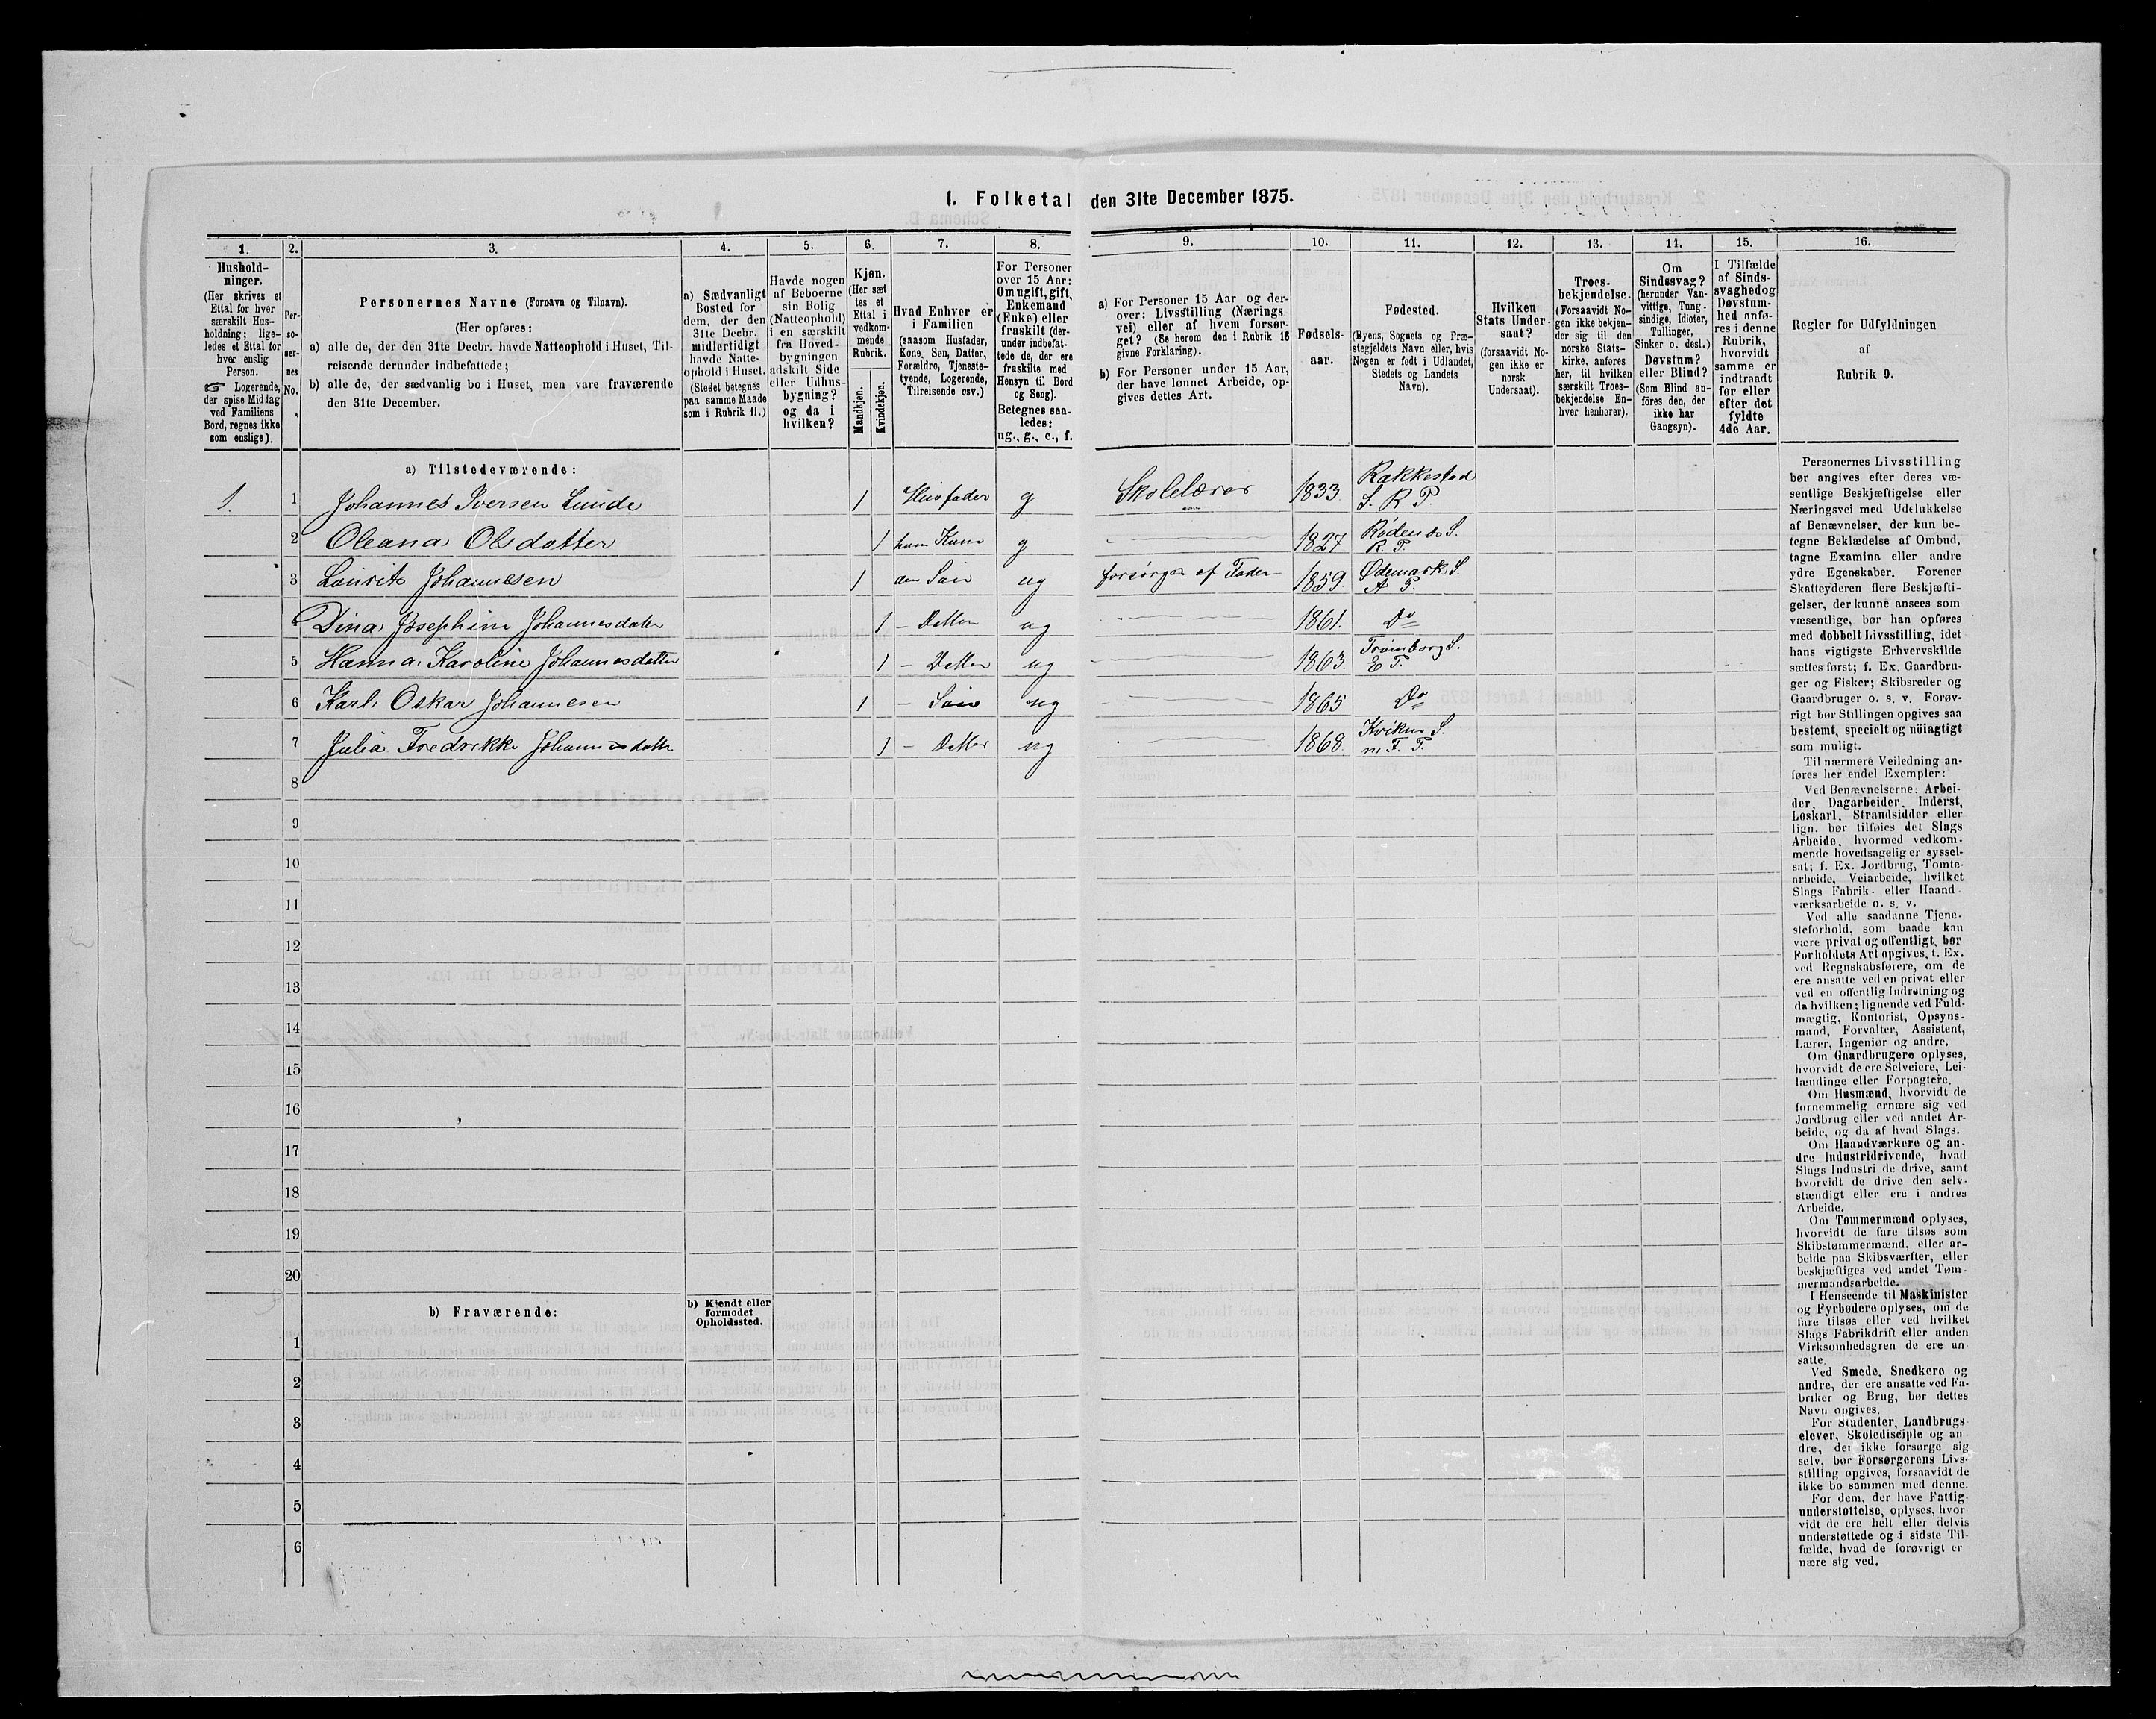 1. Folketal den 31te December 1875.
1. 2. 3. 4. 5. 6. 7. 8. 9. 10. 11. 12. 13. 14. 15. 16.
Hushold-
ninger.
(Her skrives et
Ettal for hver
særskilt Hus-
holdning; lige-
ledes et Ettal for
hver enslig
Person.
☞ Logerende,
der spise Middag
ved Familiens
Bord, regnes ikke
som enslige).
Per-
so-
ner-
nes
No.
Personernes Navne (Fornavn og Tilnavn).
(Her opføres:
a) alle de, der den 31te Decbr. havde Natteophold i Huset, Til-
reisende derunder indbefattede;
b) alle de, der sædvanlig bo i Huset, men vare fraværende
den 31te December.
a) Sædvanligt
Bosted for
dem, der den
31te Decbr.
midlertidigt
havde Natte-
ophold i Huset.
(Stedet betegnes
paa samme Maade
som i Rubrik 11.)
Havde nogen
af Beboerne
sin Bolig
(Natteophold)
i en særskilt
fra Hoved-
bygningen
adskilt Side
eller Udhus-
bygning?
og da i
hvilken?
Kjøn.
(Her sæt
tes et
Ettal i
vedkom-
mende
Rubrik.
Mandkjøn.
Kvindekjøn.
Hvad Enhver er
i Familien
(saasom Husfader,
Kone, Søn, Datter,
Forældre, Tjeneste-
tyende, Logerende,
Tilreisende osv.)
For Personer
over 15 Aar:
Om ugift, gift,
Enkemand
(Enke) eller
fraskilt (der-
under indbefat-
tede de, der ere
fraskilte med
Hensyn til Bord
og Seng).
Betegnes saa-
ledes:
ug., g., e., f.
a) For Personer 15 Aar og der-
over: Livsstilling (Nærings
vei) eller af hvem forsør-
get? (Se herom den i Rubrik 16
givne Forklaring).
b) For Personer under 15 Aar,
der have lønnet Arbeide, op-
gives dettes Art.
Fødsels-
aar.
Fødested.
(Byens, Sognets og Præ-
stegjeldets Navn eller, hvis
Nogen er født i Udlandet,
Stedets og Landets
Navn).
Hvilken
Stats Under-
saat?
(forsaavidt No-
gen ikke er
norsk
Undersaat).
Troes-
bekjendelse.
(Forsaavidt No-
gen ikke bekjen-
der sig til den
norske Stats-
kirke, anføres
her, til hvilken
særskilt Troes-
bekjendelse En-
hver henhører).
Om
Sindssvag?
(herunder Van-
vittige, Tung-
sindige, Idioter,
Tullinger,
Sinker o. desl.)
Døvstum?
eller Blind?
(Som Blind an-
føres den, der
ikke har
Gangsyn).
I Tilfælde
af Sinds-
svaghed og
Døvstum-
hed anfø-
res i denne
Rubrik,
hvorvidt
samme er
indtraadt
før eller
efter det
fyldte
4de Aar.
Regler for Udfyldningen
af
Rubrik 9.
a) Tilstedeværende:
1. 1 Johannes Iversen Lunde 1 Husfader g Skolelærer 1833. Rakkestad
S. R. P.
2 Oleana Olsdatter 1 hans Kone g 1827 Rødenæs S.
R. P.
3 Laurits Johannesen 1 des Søn ug forsørges af Fader 1859. Ødemarks S.
A P.
4 Dina Josephine Johannesdatter 1 – Datter ug 1861. Do
5 Hanna Karoline Johannesdatter 1 – Datter ug 1863. Trømborg S.
E P.
6 Karl Oskar Johannesen 1 – Søn ug 1865 Do
7 Julia Fredrikke Johannesdatter 1 – Datter ug 1868.
8
9
10
11
12
13
14
15
16
17
18
19
20
b) Fraværende:
b) Kjendt eller
formodet
Opholdssted.
1
2
3
4
5
6
Personernes Livsstilling
bør angives efter deres væ-
sentlige Beskjæftigelse eller
Næringsvei med Udelukkelse
af Benævnelser, der kun be-
tegne Beklædelse af Ombud,
tagne Examina eller andre
ydre Egenskaber. Forener
Skatteyderen flere Beskjæfti-
gelser, der kunne ansees som
væsentlige, bør han opføres
med dobbelt Livsstilling, idet
hans vigtigste Erhvervskilde
sættes først; f. Ex. Gaardbru-
ger og Fisker; Skibsreder og
Gaardbruger o. s. v. Forøv-
rigt bør Stillingen opgives saa
bestemt, specielt og nöiagtigt
som muligt.
Til nærmere Veiledning an-
føres her endel Exempler:
Ved Benævnelserne: Arbei-
der, Dagarbeider, Inderst,
Løskarl, Strandsidder eller
lign. bør tilføies det Slags
Arbeide, hvormed vedkom-
mende hovedsagelig er syssel-
sat; f. Ex. Jordbrug, Tomte-
arbeide, Veiarbeide, hvilket
Slags Fabrik- eller Haand-
værksarbeide o. s. v.
Ved alle saadanne Tjene-
steforhold, som baade kan
være privat og offentligt, bør
Forholdets Art opgives, t. Ex.
ved Regnskabsførere, om de
ere ansatte ved en privat eller
ved en offentlig Indretning og
da hvilken; lignende ved Fuld-
mægtig, Kontorist, Opsyns-
mand, Forvalter, Assistent,
Lærer, Ingeniør og andre.
Om Gaardbrugere oplyses,
hvorvidt de ere Selveiere, Lei-
lændinge eller Forpagtere.
Om Husmænd, hvorvidt de
fornemmelig ernære sig ved
Jordbrug eller ved andet Ar-
beide, og da af hvad Slags.
Om Haandværkere og an-
dre Industridrivende, hvad
Slags Industri de drive, samt
hvorvidt de drive den selv-
stændigt eller ere i andres
Arbeide.
Om Tømmermænd oplyses,
hvorvidt de fare tilsøs som
Skibstømmermænd, eller ar-
beide paa Skibsværfter, eller
beskjæftiges ved andet Tøm-
mermandsarbeide.
I Henseende til Maskinister
og Fyrbødere oplyses, om de
fare tilsøs eller ved hvilket
Slags Fabrikdrift eller anden
Virksomhedsgren de ere an-
satte.
Ved Smede, Snedkere og
andre, der ere ansatte ved Fa-
briker og Brug, bør dettes
Navn opgives.
For Studenter, Landbrugs
elever, Skoledisciple og an-
dre, der ikke forsørge sig
selv, bør Forsørgerens Livs-
stilling opgives, forsaavidt de
ikke bo sammen med denne.
For dem, der have Fattig-
understøttelse, oplyses, hvor-
vidt de ere helt eller delvis
understøttede og i sidste Til-
fælde, hvad de forøvrigt er
nære sig ved.